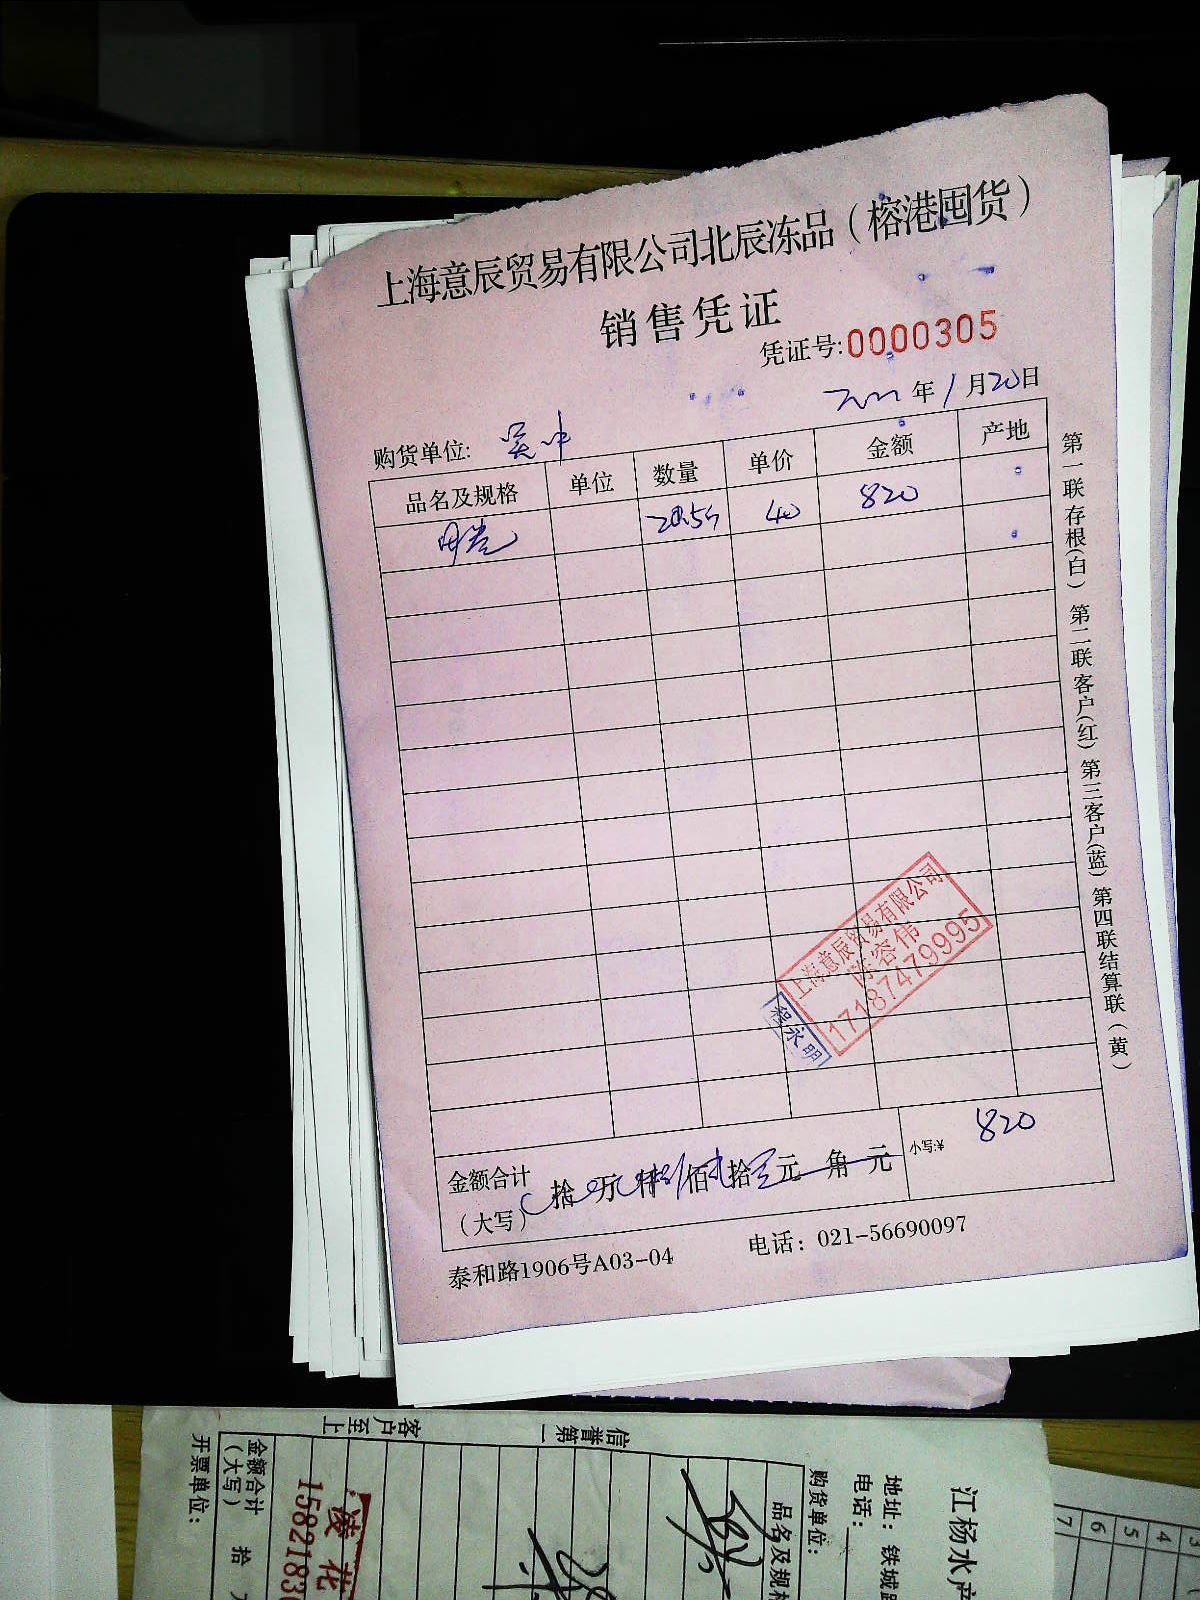 上海意辰贸易有限公司北辰冻品（榕港囤货）
销售凭证
凭证号:0000305
年1月20日
购货单位: 吴中
品名及规格 单位 数量 单价 金额 产地
20.5 40 820
第一联存根(白) 第二联客户(红) 第三客户(蓝) 第四联结算联(黄)
上海意辰贸易有限公司
陈容伟
17187479995
程永明
金额合计 拾 万 仟 佰 拾 元 角 元 小写:¥ 820
(大写)
泰和路1906号A03-04 电话：021-56690097
江杨水产
地址：铁城路
电话：
购货单位：
品名及规格
信誉第一
客户至上
凌花
1582183
金额合计
(大写) 拾
开票单位：
3
4
5
6
7